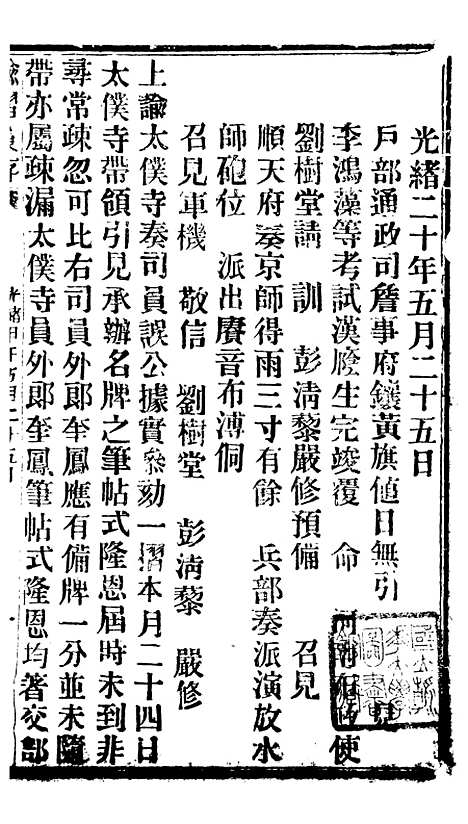 光緒二十年五月二十五日
戶部通政司詹事府鑲黃旗値日無引 見
李鴻藻等考試漢廕生完竣覆 命 使
劉樹堂請 訓 彭淸藜嚴修預備 召見
順天府奏京師得雨三寸有餘 兵部奏派演放水
師砲位 派出賡音布溥侗
召見軍機 敬信 劉樹堂 彭淸藜 嚴修
上諭太僕寺奏司員誤公據實叅劾一摺本月二十四日
太僕寺帶領引見承辦名牌之筆帖式隆恩屆時未到非
尋常疎忽可比右司員外郞奎鳳應有備牌一分並未隨
帶亦屬疎漏太僕寺員外郞奎鳳筆帖式隆恩均著交部